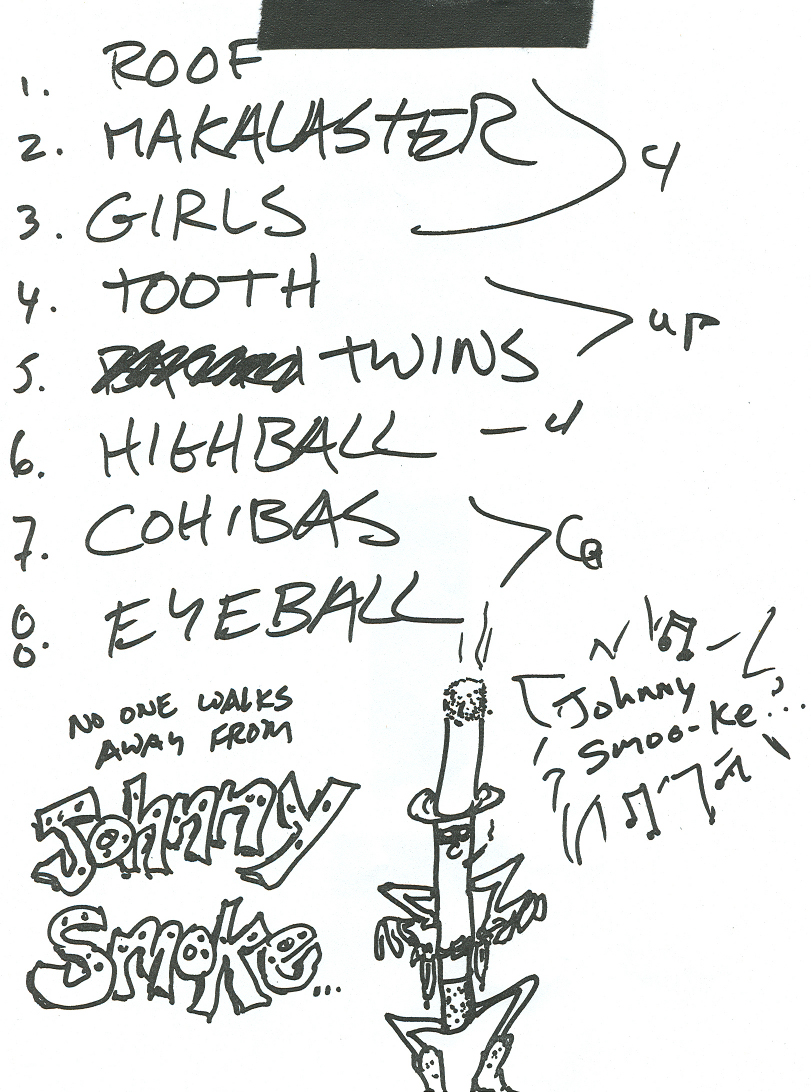 1. ROOF
2. MAKALASTER
3. GIRLS
4
4. TOOTH
5. TWINS
up
6. HIGHBALL - 4
7. COHIBAS
8. EYEBALL
NO ONE WALKS
AWAY FROM
Johnny
Smoke...
Johnny
Smoo-Ke...